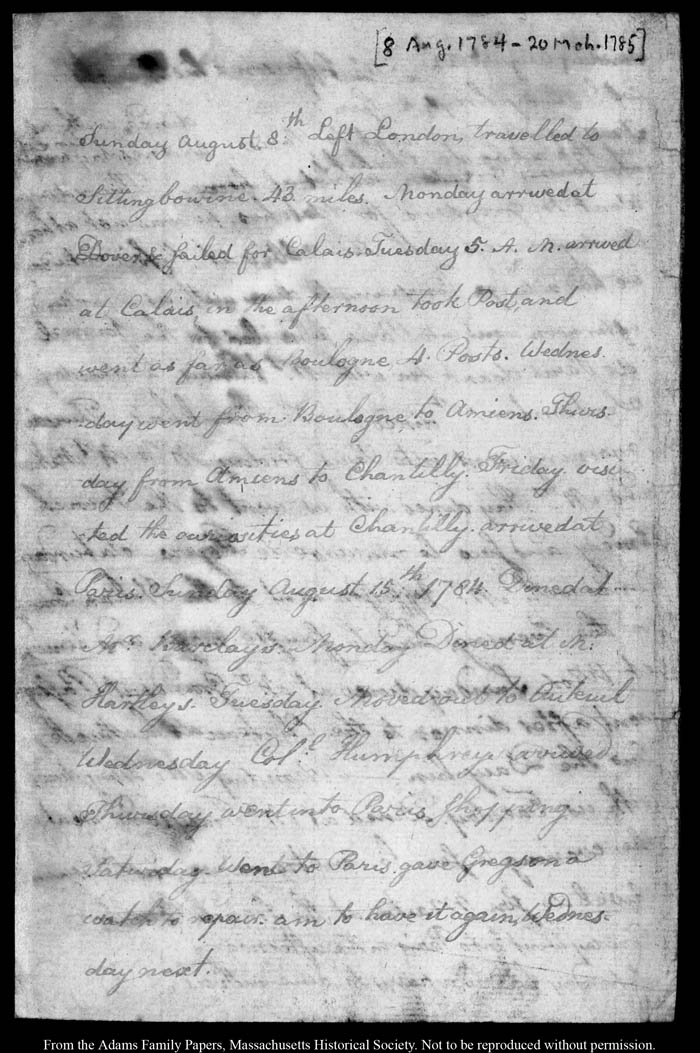 [8 Aug. 1784 – 20 Mch. 1785]
Sunday August. 8.th Left London, travelled to
Sittingbowine. 43 miles. Monday arrived at
Dover & sailed for Calais. Tuesday 5. A. M. arrived
at Calais, in the afternoon took Post, and
went as far as Boulogne 4. Posts. Wednes.
day went from Boulogne to Amiens. Thurs.
day from Amiens to Chantilly. Friday visi
ted the curiosities at Chantilly. arrived at
Paris. Sunday August 15.th 1784. Dined at
Mr. Barclay's. Monday Dined at Mr.
Hartleys. Tuesday Moved out to Auteuil
Wednesday Col.l Humphreys arrived.
Thursday went into Paris Shopping
Saturday. Went to Paris. gave Gregson a
watch to repair. am to have it again, Wednes-
day next.
From the Adams Family Papers, Massachusetts Historical Society. Not to be reproduced without permission.